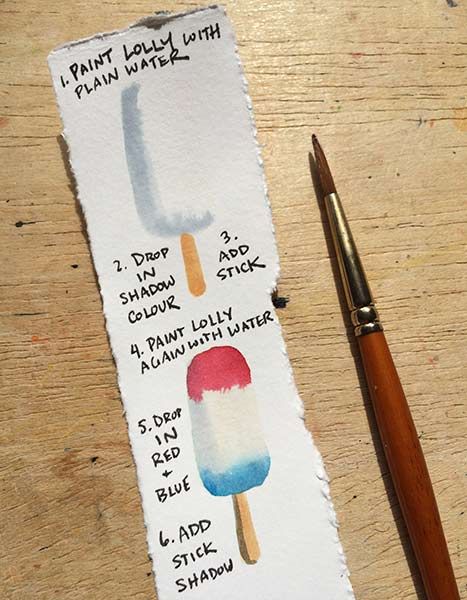 1. PAINT LOLLY WITH
PLAIN WATER
2. DROP
IN
SHADOW
COLOUR
3.
ADD
STICK
4. PAINT LOLLY
AGAIN WITH WATER
5. DROP
IN
RED
+
BLUE
6. ADD
STICK
SHADOW